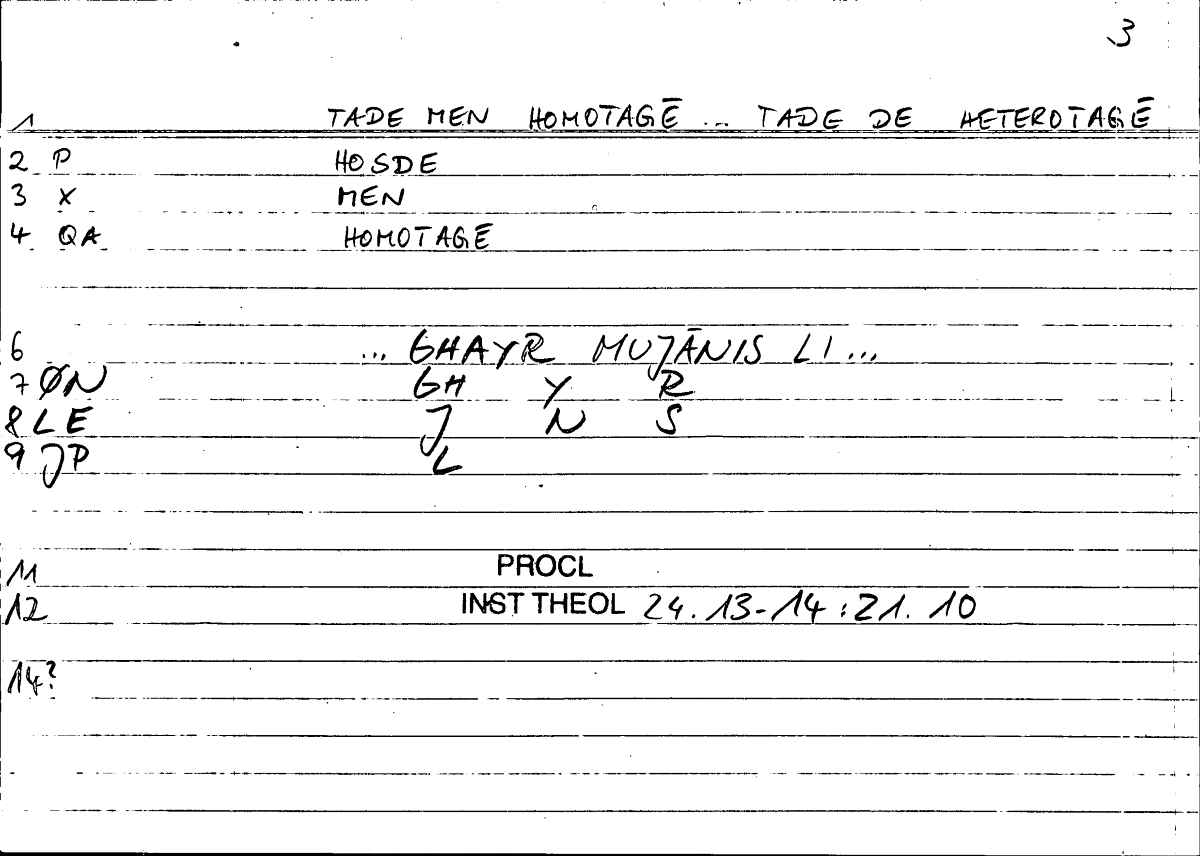 3
1 TADE MEN HOMOTAGĒ ... TADE DE HETEROTAGĒ
2 P HOSDE
3 X MEN
4 QA HOMOTAGĒ
6 ... GHAYR MUJĀNIS LI ...
7 ØN GH Y R
8 LE J N S
9 JP L
11 PROCL
12 INST THEOL 24.13-14:21.10
14?